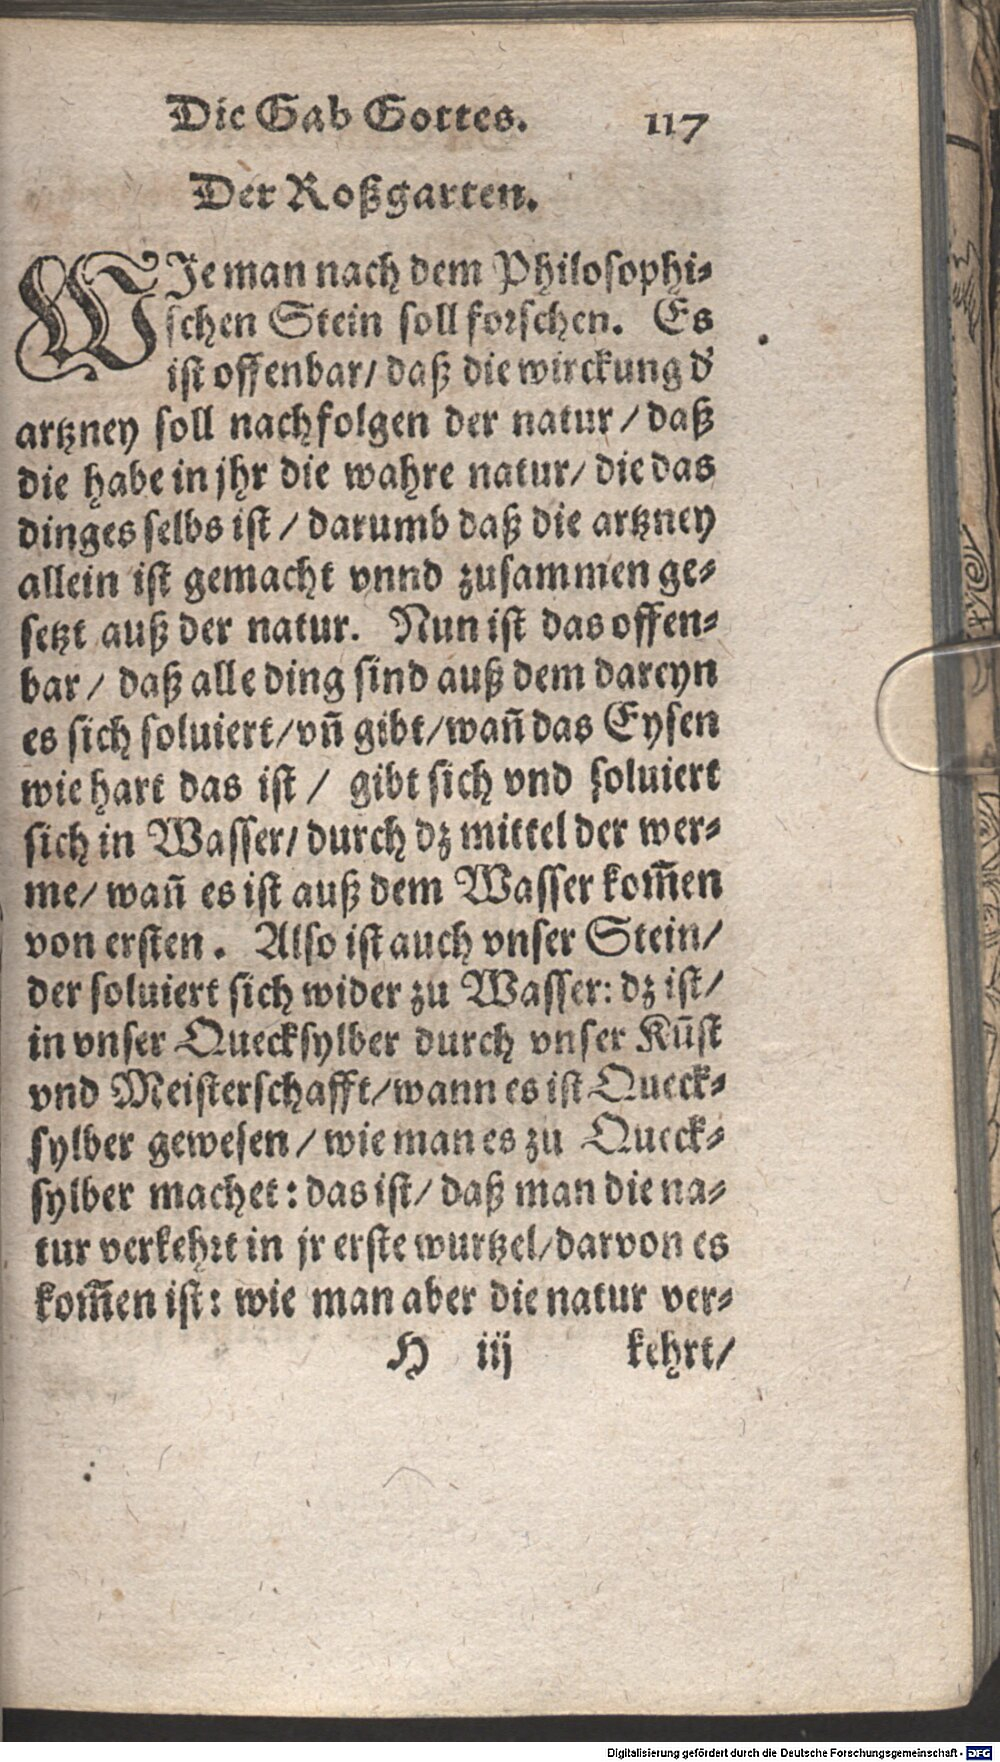 Die Gab Gottes. 117
Der Roßgarten.
WJe man nach dem Philosophi-
schen Stein soll forschen. Es
ist offenbar/ daß die wirckung d'
artzney soll nachfolgen der natur / daß
die habe in jhr die wahre natur/ die das
dinges selbs ist / darumb daß die artzney
allein ist gemacht vnnd zusammen ge-
setzt auß der natur. Nun ist das offen-
bar / daß alle ding sind auß dem dareyn
es sich soluiert/vn̄ gibt/wan̄ das Eysen
wie hart das ist / gibt sich vnd soluiert
sich in Wasser/ durch dz mittel der wer-
me/ wan̄ es ist auß dem Wasser kom̄en
von ersten. Also ist auch vnser Stein/
der soluiert sich wider zu Wasser: dz ist/
in vnser Quecksylber durch vnser Kūst
vnd Meisterschafft/wann es ist Queck-
sylber gewesen / wie man es zu Queck-
sylber machet: das ist/ daß man die na-
tur verkehrt in jr erste wurtzel/darvon es
kom̄en ist: wie man aber die natur ver-
H iij kehrt/
Digitalisierung gefördert durch die Deutsche Forschungsgemeinschaft - DFG